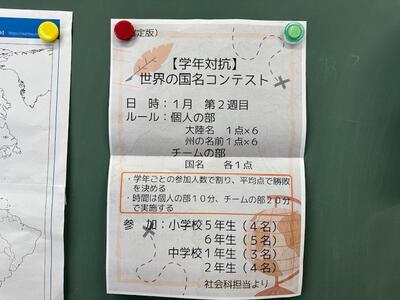 定版）
【学年対抗】
世界の国名コンテスト
日　時：１月　第２週目
ルール：個人の部
大陸名　１点×６
州の名前１点×６
チームの部
国名　各１点
・学年ごとの参加人数で割り、平均点で勝敗
を決める
・時間は個人の部１０分、チームの部２０分
で実施する
参　加：小学校５年生（４名）
６年生（５名）
中学校１年生（３名）
２年生（４名）
社会科担当より